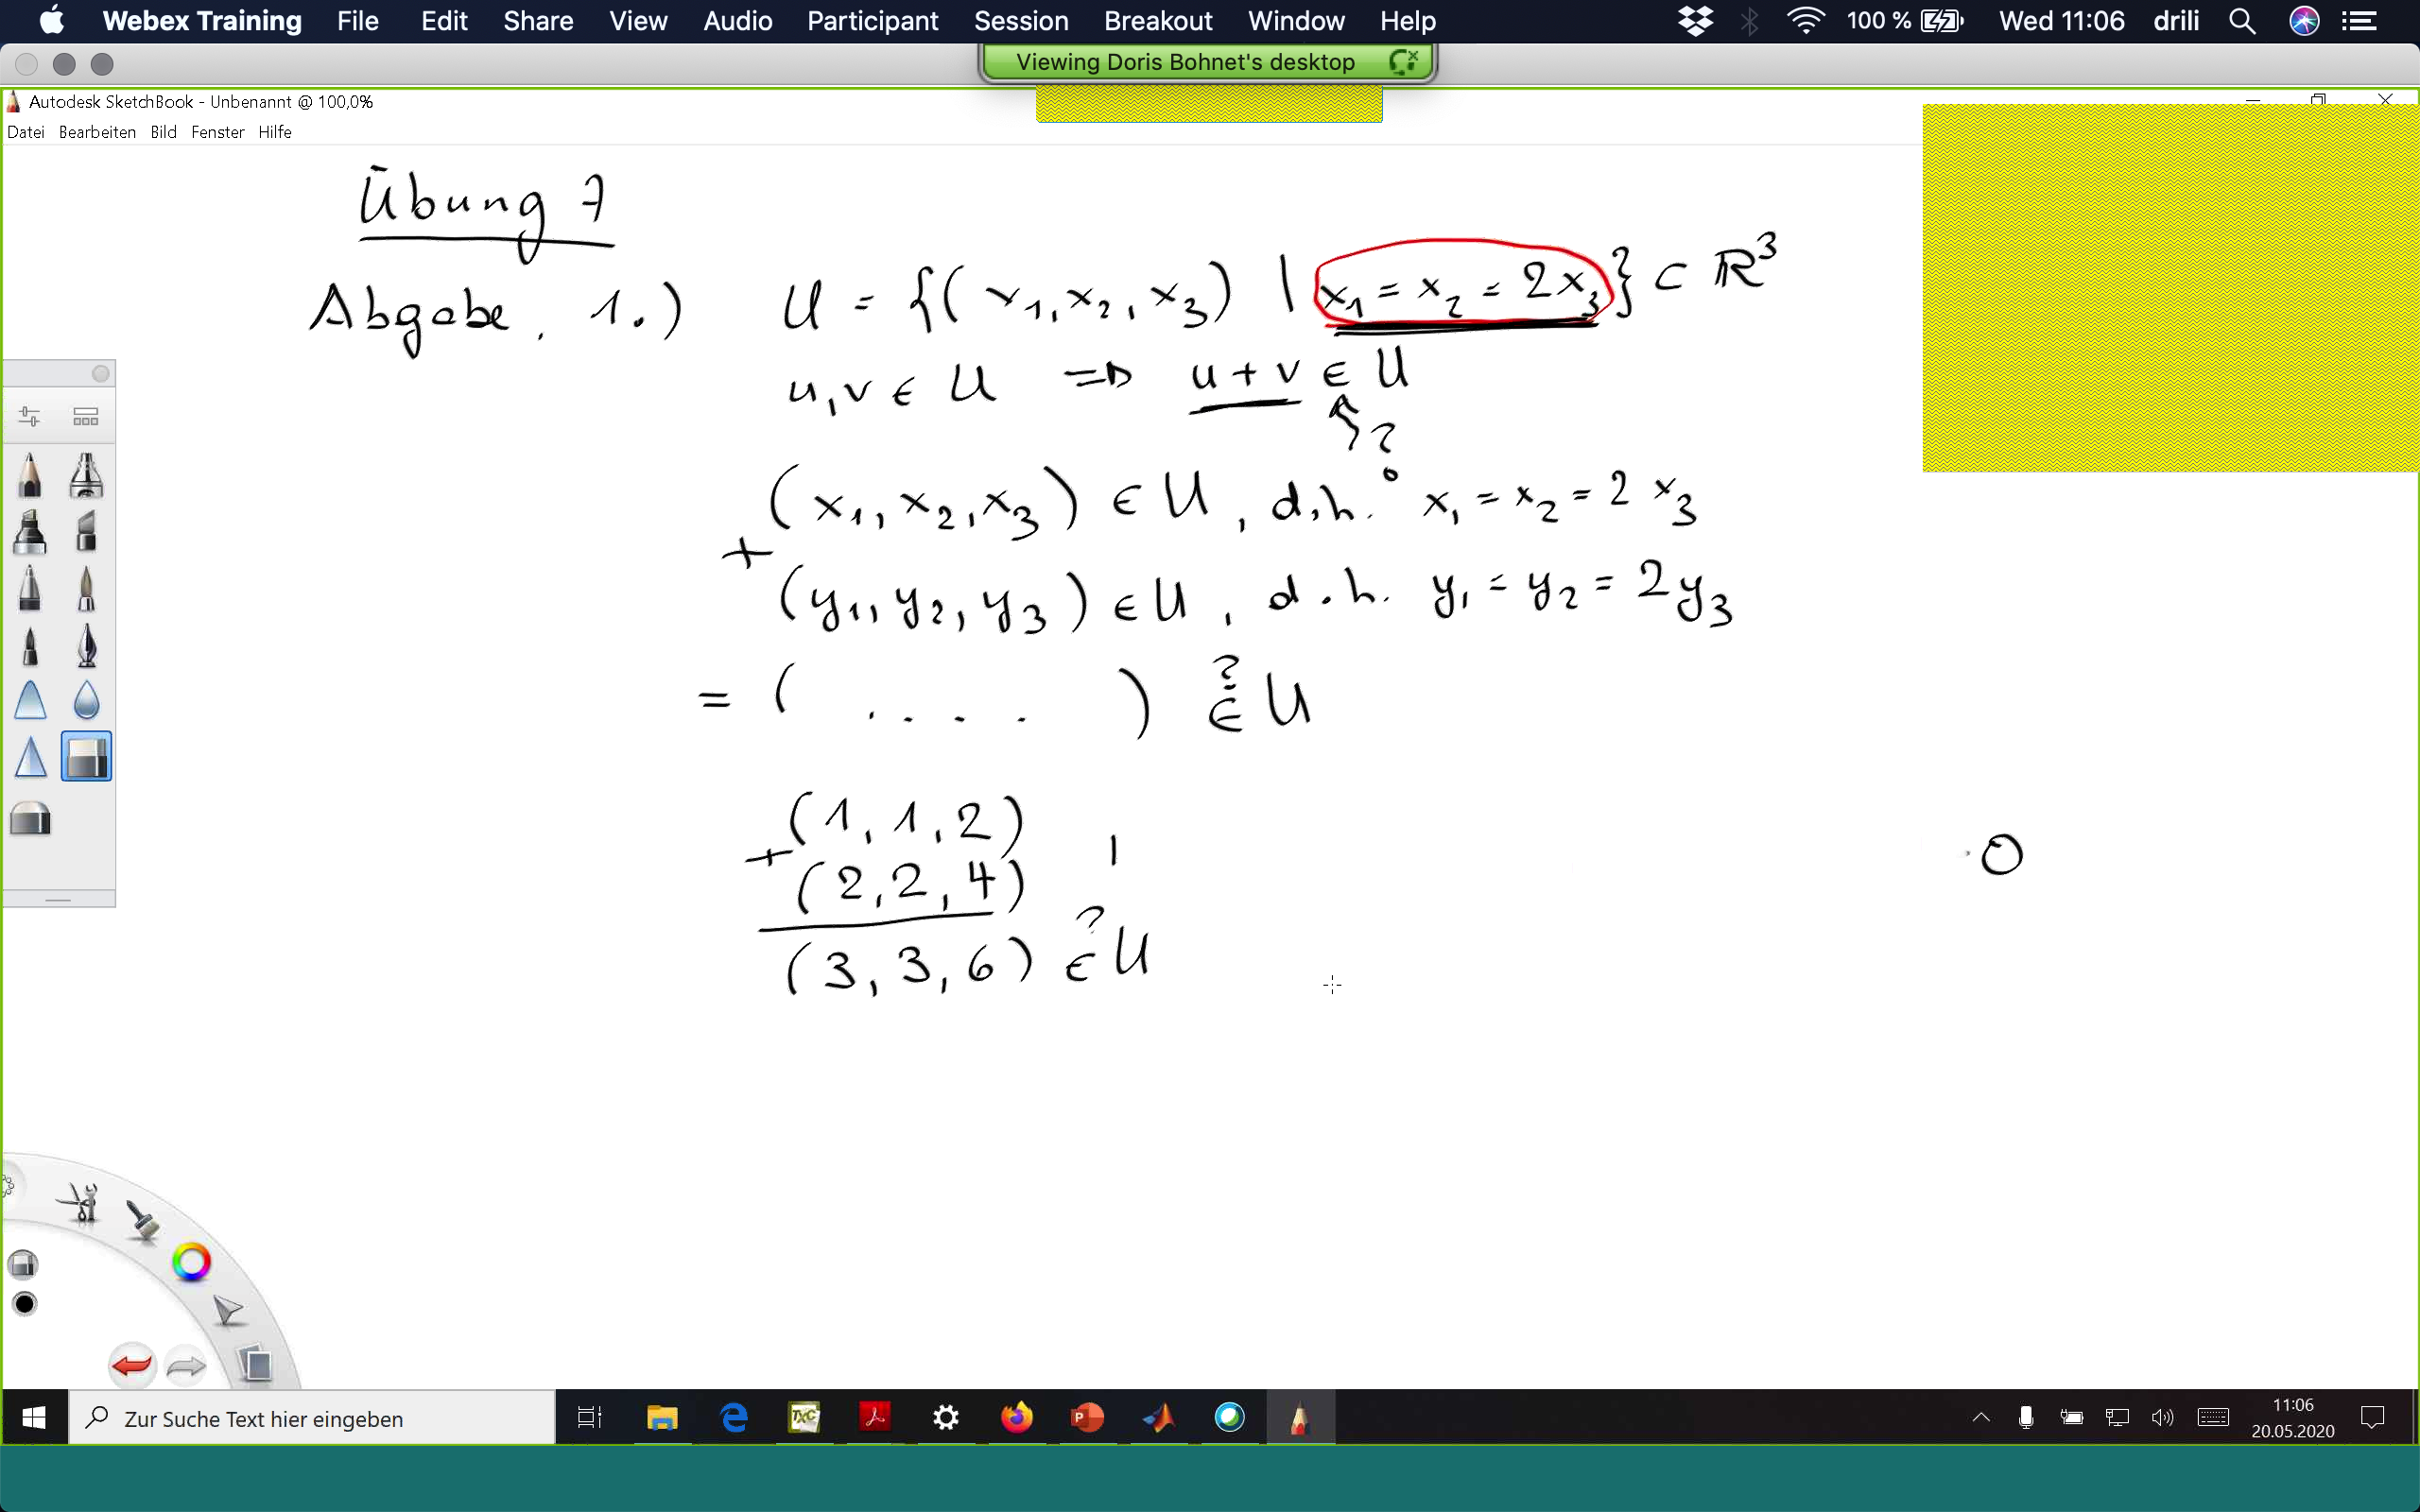 Webex Training File Edit Share View Audio Participant Session Breakout Window Help 100 % Wed 11:06 drili
Viewing Doris Bohnet's desktop
Autodesk SketchBook - Unbenannt @ 100,0%
Datei Bearbeiten Bild Fenster Hilfe
Übung 7
Abgabe. 1.) U = {(x₁, x₂, x₃) | x₁ = x₂ = 2x₃} ⊂ ℝ³
u, v ∈ U ⇒ u + v ∈ U
?
(x₁, x₂, x₃) ∈ U, d.h. x₁ = x₂ = 2 x₃
+
(y₁, y₂, y₃) ∈ U, d.h. y₁ = y₂ = 2y₃
= ( . . . . ) ∈ U
?
(1, 1, 2)
+ (2, 2, 4)
(3, 3, 6) ∈ U
?
0
Zur Suche Text hier eingeben
11:06
20.05.2020